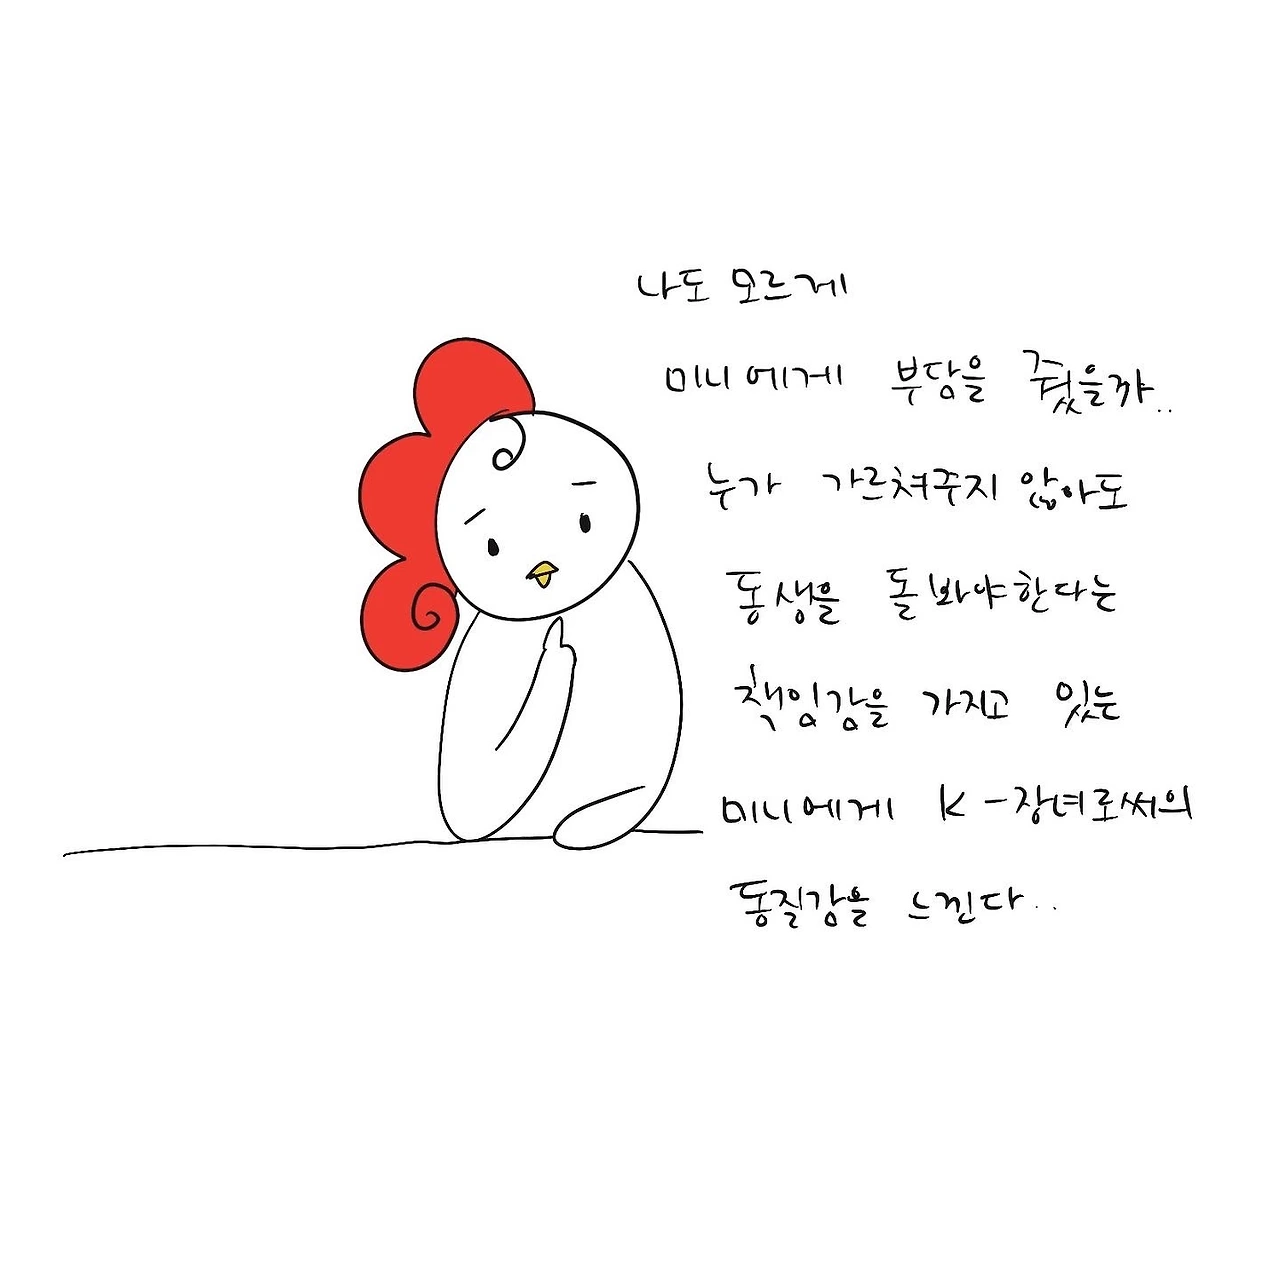 나도 모르게
미니에게 부담을 줬을까..
누가 가르쳐주지 않아도
동생을 돌봐야한다는
책임감을 가지고 있는
미니에게 K-장녀로써의
동질감을 느낀다..